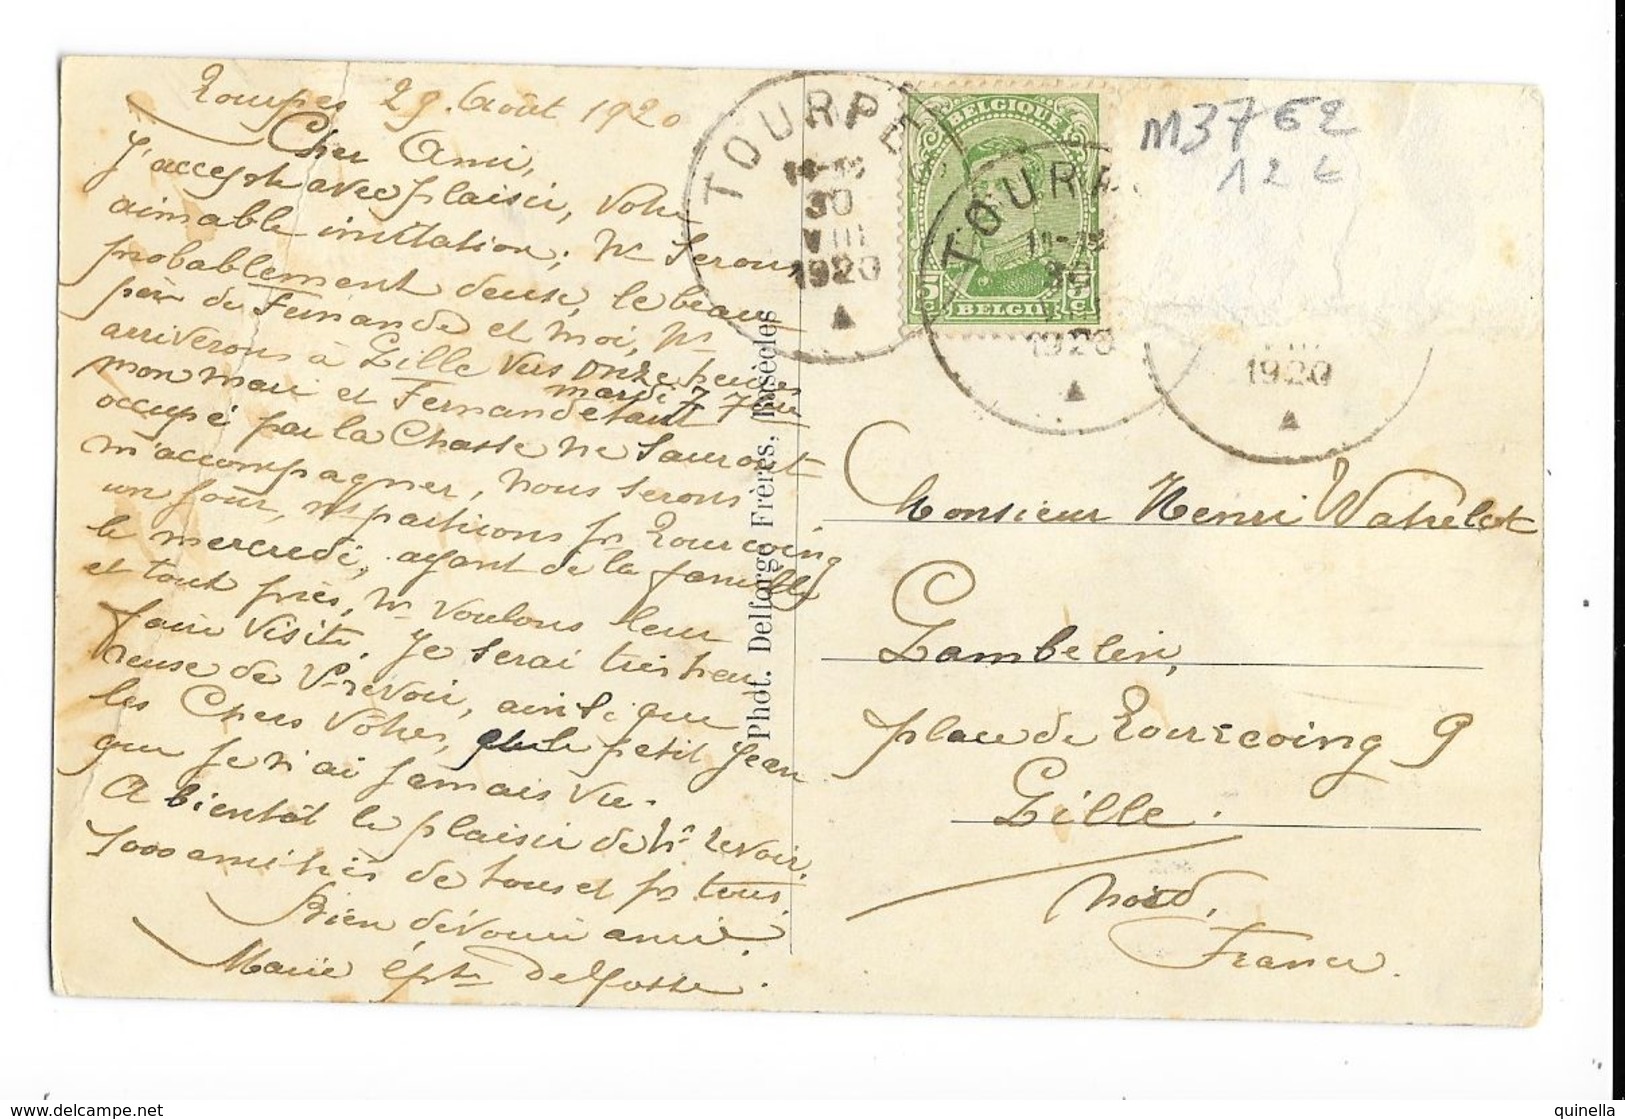 Tourpes 29. Août 1920
Cher Ami,
J'accepte avec plaisir, votre
aimable invitation; ns serons
probablement deux, le beau
père de Fernande et moi, ns
arriverons à Lille vers onze heures
mardi 7 7bre
mon mari et Fernand étant
occupé par la Chasse ne sauront
m'accompagner, nous serons
un jour, ns partirons pr Tourcoing
le mercredi, ayant de la famille
et tout près, ns voulons leur
faire visite. Je serai très heu
reuse de vs revoir, ainsi que
les Chers Vôtres, le petit Jean
que je n'ai jamais vu.
A bientôt le plaisir de ns revoir.
1000 amitiés de tous et pr tous.
Bien dévouée amie.
Marie épse Delfosse.
Phot. Delfarge Frères, Basècles
TOURPE
30
VIII
1920
BELGIQUE
5 c
5 c
BELGIE
TOURP
30
1920
1920
M3762
12 €
Monsieur Henri Watrelot
Lambelin,
place de Tourcoing 9
Lille.
Nord,
France.
delcampe.net
quinella